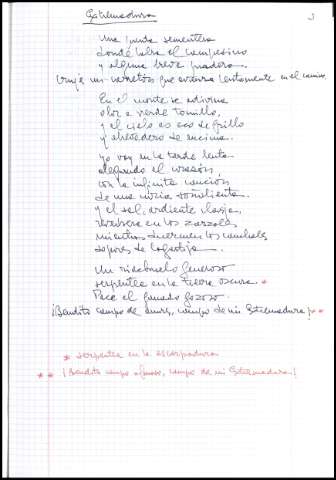 Extremadura
3
Una junta sementera
donde labra el campesino
y alguna breve pradera.
Cruje un carretón que avanza lentamente en el camino
En el monte se adivina
olor a verde tomillo,
y el cielo es eco de grillo
y de encina.
Yo voy en la tarde lenta
alegrando el corazón,
con la infinita canción
de una noria soñolienta
y el sol, ardiente
reverbera en los zarzales
mientras duermen los
sopores de lagartija
Un riachuelo generoso
serpentea en la tierra oscura *
Pace el ganado gozoso
¡Bendito campo de, campo de mi Extremadura! * *
* serpentea en la
* * ¡Bendito campo, campo de mi Extremadura!